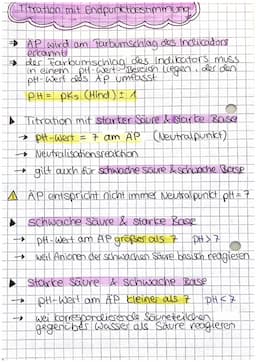 Titration mit Endpunktbestimmung
→ ÄP wird am Farbumschlag des Indikators
erkannt
→ der Farbumschlag des Indikators muss
in einem pH-Wert-Bereich liegen, der den
pH-Wert des ÄP umfasst
pH = pKs (HInd) ± 1
▲ Titration mit starker Säure & starke Base
→ pH-Wert = 7 am ÄP (Neutralpunkt)
→ Neutralisationsreaktion
→ gilt auch für schwache Säure & schwache Base
⚠ ÄP entspricht nicht immer Neutralpunkt pH = 7
▲ schwache Säure & starke Base
→ pH-Wert am ÄP größer als 7 pH > 7
→ weil Anionen der schwachen Säure basisch reagieren
▲ starke Säure & schwache Base
→ pH-Wert am ÄP kleine als 7 pH < 7
→ weil korrespondierende Säureteilchen
gegenüber Wasser als Säure reagieren